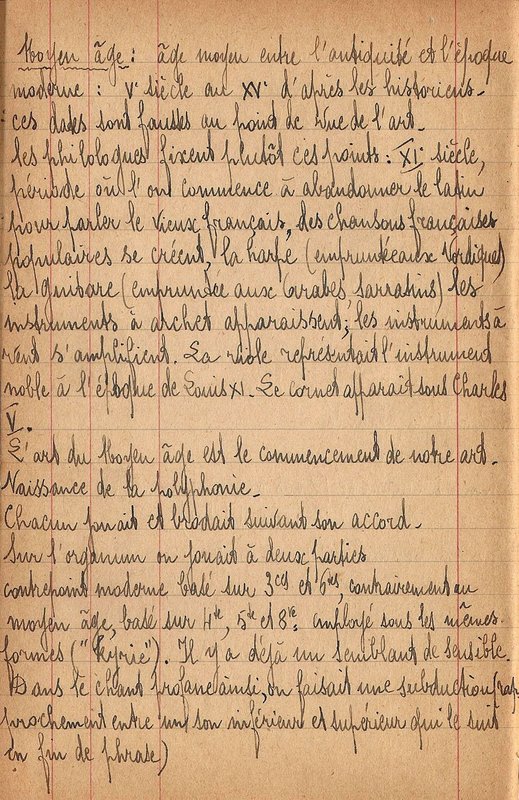 Moyen âge : âge moyen entre l'antiquité et l'époque
moderne : Ve siècle au XVe d'après les historiens.
ces dates sont fausses au point de vue de l'art.
les philologues fixent plutôt ces points : XIe siècle,
période où l'on commence à abandonner le latin
pour parler le vieux français, des chansons françaises
populaires se créent, la harpe (empruntée aux Nordiques)
la guitare (empruntée aux Arabes, sarrasins) les
instruments à archet apparaissent ; les instruments à
vent s'amplifient. La viole représentait l'instrument
noble à l'époque de Louis XI. Le cornet apparait sous Charles
V.
L'art du Moyen âge est le commencement de notre art.
Naissance de la polyphonie.
Chacun jouait et brodait suivant son accord.
Sur l'organum on jouait à deux parties
contrepoint moderne basé sur 3ces et 6tes, contrairement au
moyen âge, basé sur 4te, 5te et 8ve. employé sous les mêmes
formes ("Kyrie"). Il y a déjà un semblant de sensible.
Dans le chant profane ainsi, on faisait une subduction (rap
prochement entre un son inférieur et supérieur qui le suit
en fin de phrase)